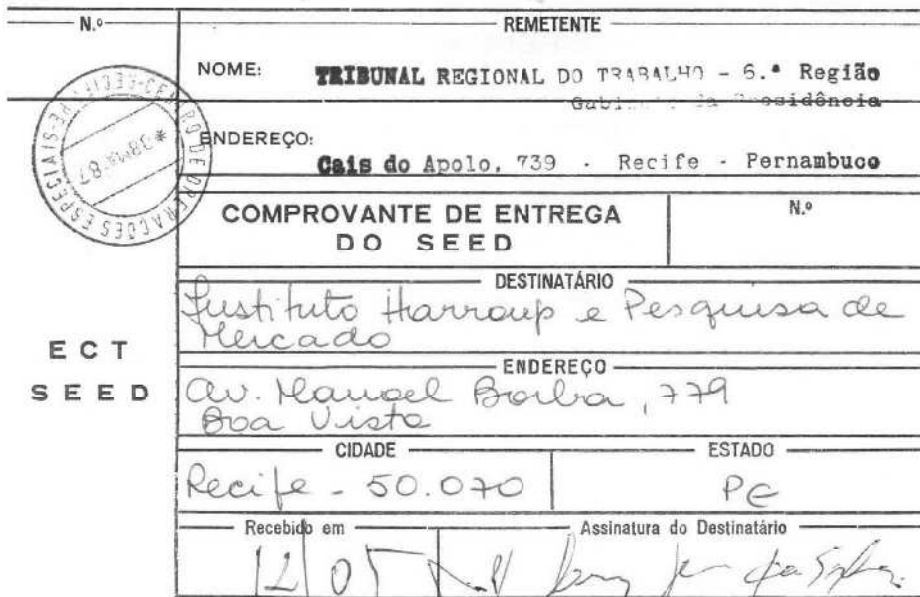 N.º
REMETENTE
NOME: TRIBUNAL REGIONAL DO TRABALHO - 6.ª Região
Gabinete da Presidência
ENDEREÇO:
Cais do Apolo, 739 - Recife - Pernambuco
CENTRO DE OPERAÇÕES ESPECIAIS-PE
87
COMPROVANTE DE ENTREGA
DO SEED
N.º
ECT
SEED
DESTINATÁRIO
Instituto Harroup e Pesquisa de
Mercado
ENDEREÇO
Av. Manoel Borba, 779
Boa Vista
CIDADE
ESTADO
Recife - 50.070
PE
Recebido em
Assinatura do Destinatário
12 05